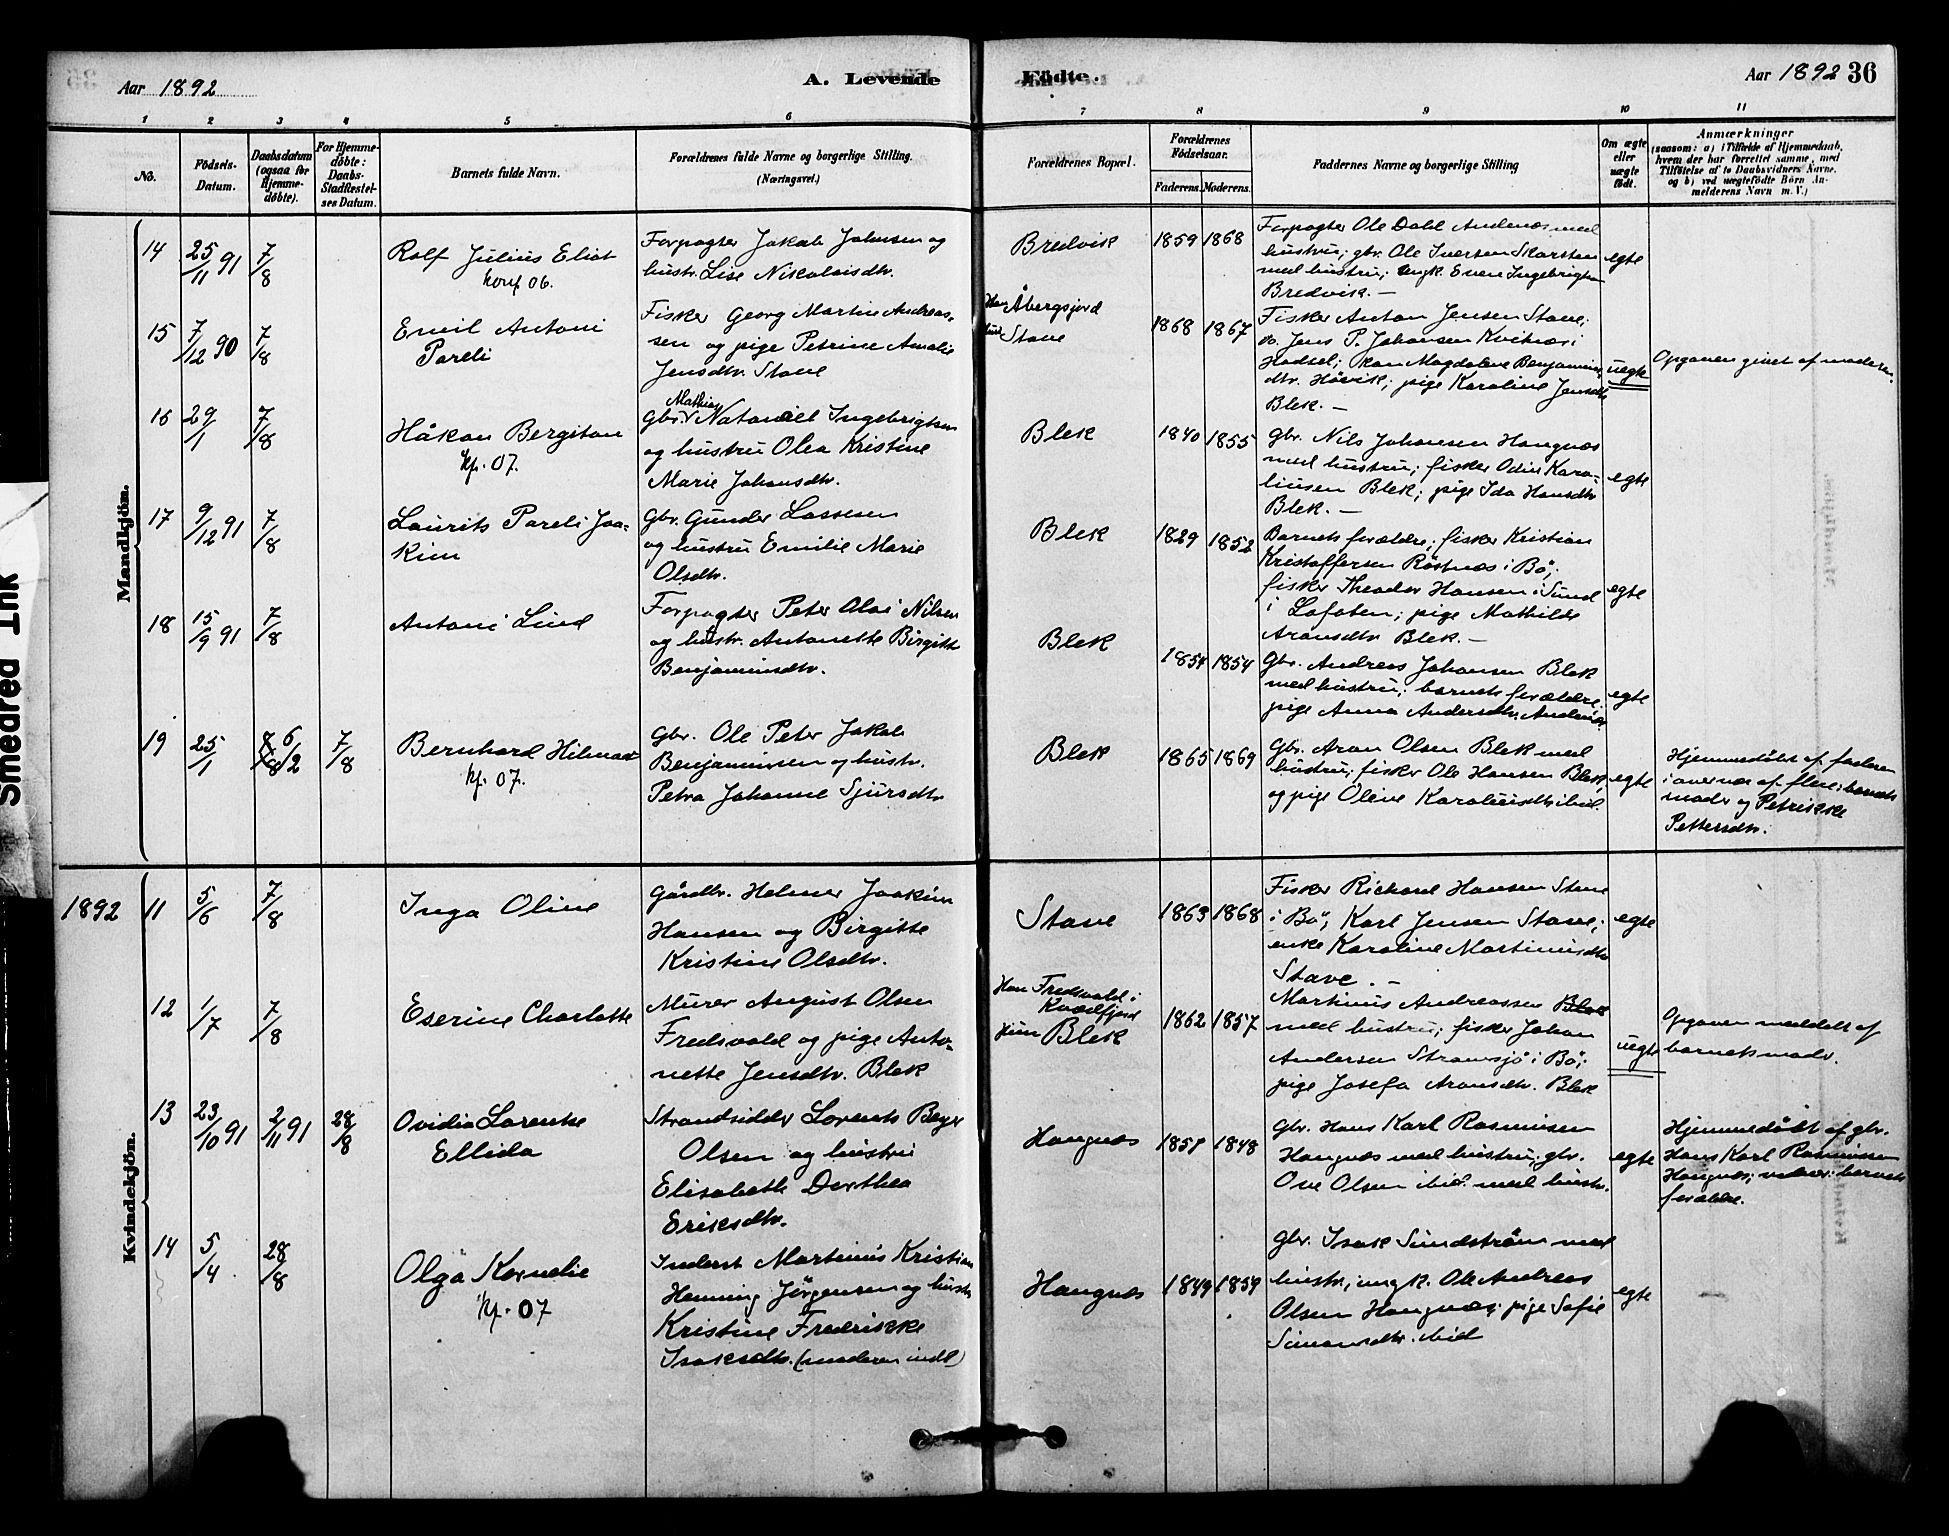 Aar 1892
A. Levende
Födte.
Aar 1892 36
1 2 3 4 5 6 7 8 9 10 11
No.
Födsels-
Datum.
Daabsdatum
(ogsaa for
Hjemme-
döbte).
For Hjemme-
döbte:
Daabs-
Stadfestel-
ses Datum.
Barnets fulde Navn.
Forældrenes fulde Navne og borgerlige Stilling.
(Næringsvei.)
Forældrenes Bopæl.
Forældrenes
Födselsaar.
Faderens. Moderens.
Faddernes Navne og borgerlige Stilling
Om ægte
eller
uægte
født.
Anmærkninger
(saasom: a) i Tilfælde af Hjemmedaab,
hvem der har forrettet samme, med
Tilföielse af to Daabsvidners Navne,
og b) ved uægtefödte Börn An-
melderens Navn m. V.)
Mandkjön.
14
25/11 91
7/8
Rolf Julius Eliot
konf 06.
Forpagter Jakob Johnsen og
hustr. Lise Nikolaisdtr.
Bredvik
1859 1868
Forpagter Ole Dahl Andenæs med
hustru; gbr. Ole Iversen Skarsten
med hustru; ungk. Even Ingebrigtsen
Bredvik. —
egte
15
7/12 90
7/8
Emil Antoni
Pareli
Fisker Georg Martin Andreas-
sen og pige Petrine Amalie
Jensdtr. Stave
Han Åbergsjord
Hun Stave
1868 1867
Fisker Anton Jensen Stave;
do. Jens P. Johansen Kvitnæs i
Hadsel; kone Magdalene Benjamins-
dtr. Høvik; pige Karoline Jensdtr
Blek. —
uegte
Opgaven givet af moderen.
16
29/1
7/8
Håkon Bergiton
kf. 07.
Mathias
Gbr. Nataniel Ingebrigtsen
og hustru Olea Kristine
Marie Johansdtr.
Blek
1840 1855
Gbr. Nils Johansen Haugnæs
med hustru; fisker Odin Karo-
liusen Blek; pige Ida Hansdtr
Blek. —
egte
17
9/12 91
7/8
Laurits Pareli Joa-
kim
Gbr. Gunder Lassesen
og hustru Emilie Marie
Olsdtr.
Blek
1829 1852
Barnets forældre; fisker Kristian
Kristoffersen Röstnæs i Bö;
fisker Theodor Hansen i Sund
i Lofoten; pige Mathilde
Aronsdtr Blek. —
egte
18
15/9 91
7/8
Antoni Lind
Forpagter Peter Olai Nilsen
og hustr. Antonette Birgitte
Benjaminsdtr.
Blek
1854 1854
Gbr. Andreas Johansen Blek
med hustru; barnets forældre;
pige Anna Andersdtr. Andenæs
egte
19
25/1
7/8 6/2
7/8
Bernhard Hilmar
kf. 07.
Gbr. Ole Peter Jakob
Benjaminsen og hustr.
Petra Johanne Sjursdtr
Blek
1865 1869
Gbr. Aron Olsen Blek med
hustru; fisker Ole Hansen Blek,
og pige Oline Karoliusdtr ibid.
egte
Hjemmedöbt af faderen
i overvær af flere; barnets
moder og Petrikke
Pettersdtr.
1892
Kvindekjön.
11
5/6
7/8
Inga Oline
Gårdbr. Helmer Joakim
Hansen og Birgitte
Kristine Olsdtr.
Stave
1863 1868
Fisker Richard Hansen Stave
i Bö; Karl Jensen Stave;
enke Karoline Martinusdtr
Stave. —
egte
12
1/7
7/8
Eserine Charlotte
Murer August Olsen
Fredsvold og pige Anto-
nette Jensdtr. Blek
Han Fredsvold i
Kvædfjord
Hun Blek
1862 1857
Martinus Andreassen Blek
med hustru; fisker Johan
Andersen Strømsjö i Bö;
pige Josefa Aronsdtr. Blek
uegte
Opgaven meddelt af
barnets moder.
13
23/10 91
2/11 91
28/8
Ovidia Lorentse
Ellida
Strandsidder Lorents Beyer
Olsen og hustru
Elisabeth Dorthea
Eriksdtr.
Haugnæs
1851 1848
Gbr. Hans Karl Rasmussen
Haugnæs med hustru; gbr.
Ove Olsen ibid. med hustr.
egte
Hjemmedöbt af gbr.
Hans Karl Rasmussen
Haugnæs; barnets
forældre.
14
5/4
28/8
Olga Kornelie
kf. 07
Inderst Martinus Kristian
Henning Jörgensen og hustr
Kristine Fredrikke
Isaksdtr. (moderen indl)
Haugnæs
1849 1859
Gbr. Isak Sundström med
hustr., ungk. Ole Andreas
Olsen Haugnæs; pige Sofie
Simonsdtr. ibid
egte
Smedred Ink